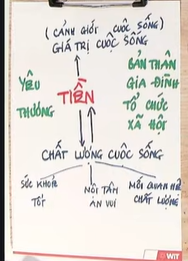 ( CẢNH GIỚI CUỘC SỐNG )
GIÁ TRỊ CUỘC SỐNG
YÊU
THƯƠNG
TIỀN
BẢN THÂN
GIA ĐÌNH
TỔ CHỨC
XÃ HỘI
CHẤT LƯỢNG CUỘC SỐNG
SỨC KHỎE
TỐT
MỘT TÂM
AN VUI
MỐI QUAN HỆ
CHẤT LƯỢNG
WIT